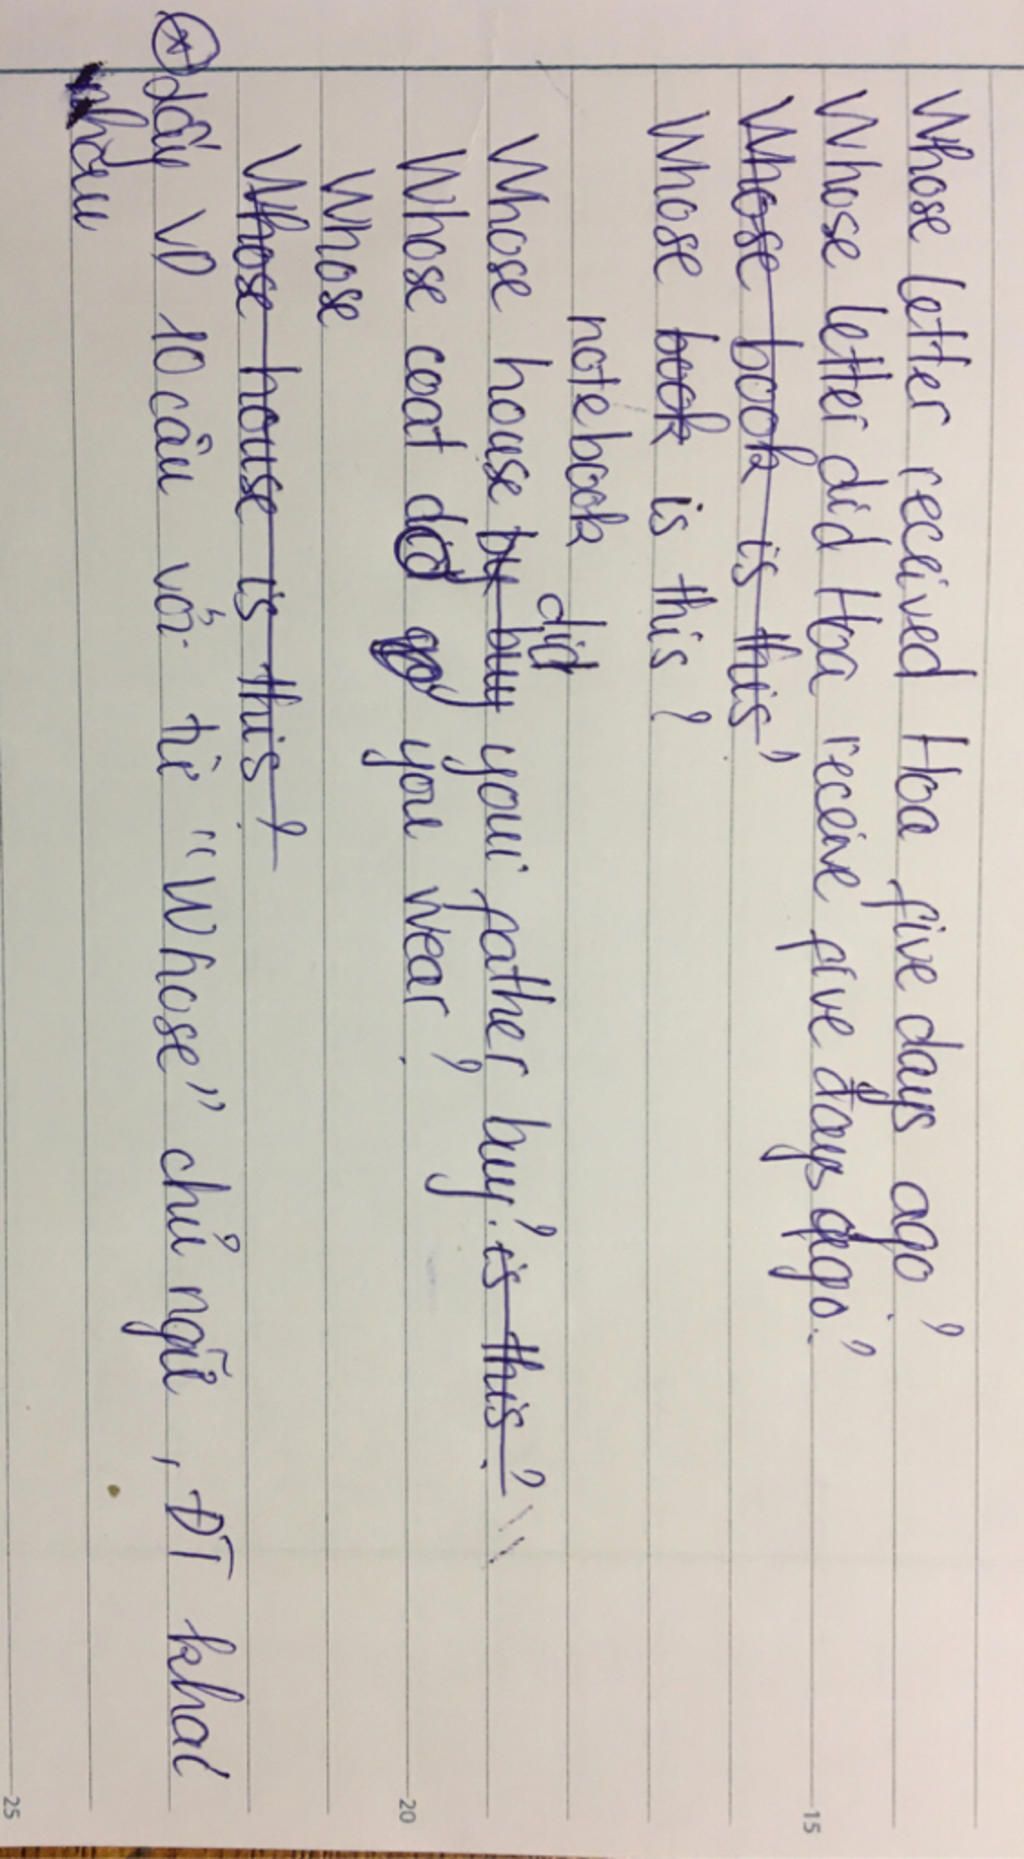 Whose letter received Hoa five days ago?
Whose letter did Hoa receive five days ago?
Whose book is this?
Whose book is this?
notebook did
Whose house by buy your father buy? is this?
Whose coat did go you wear?
Whose
Whose house is this?
* dấy VD 10 câu với từ "Whose" chủ ngữ, ĐT khac
nhau
15
20
25